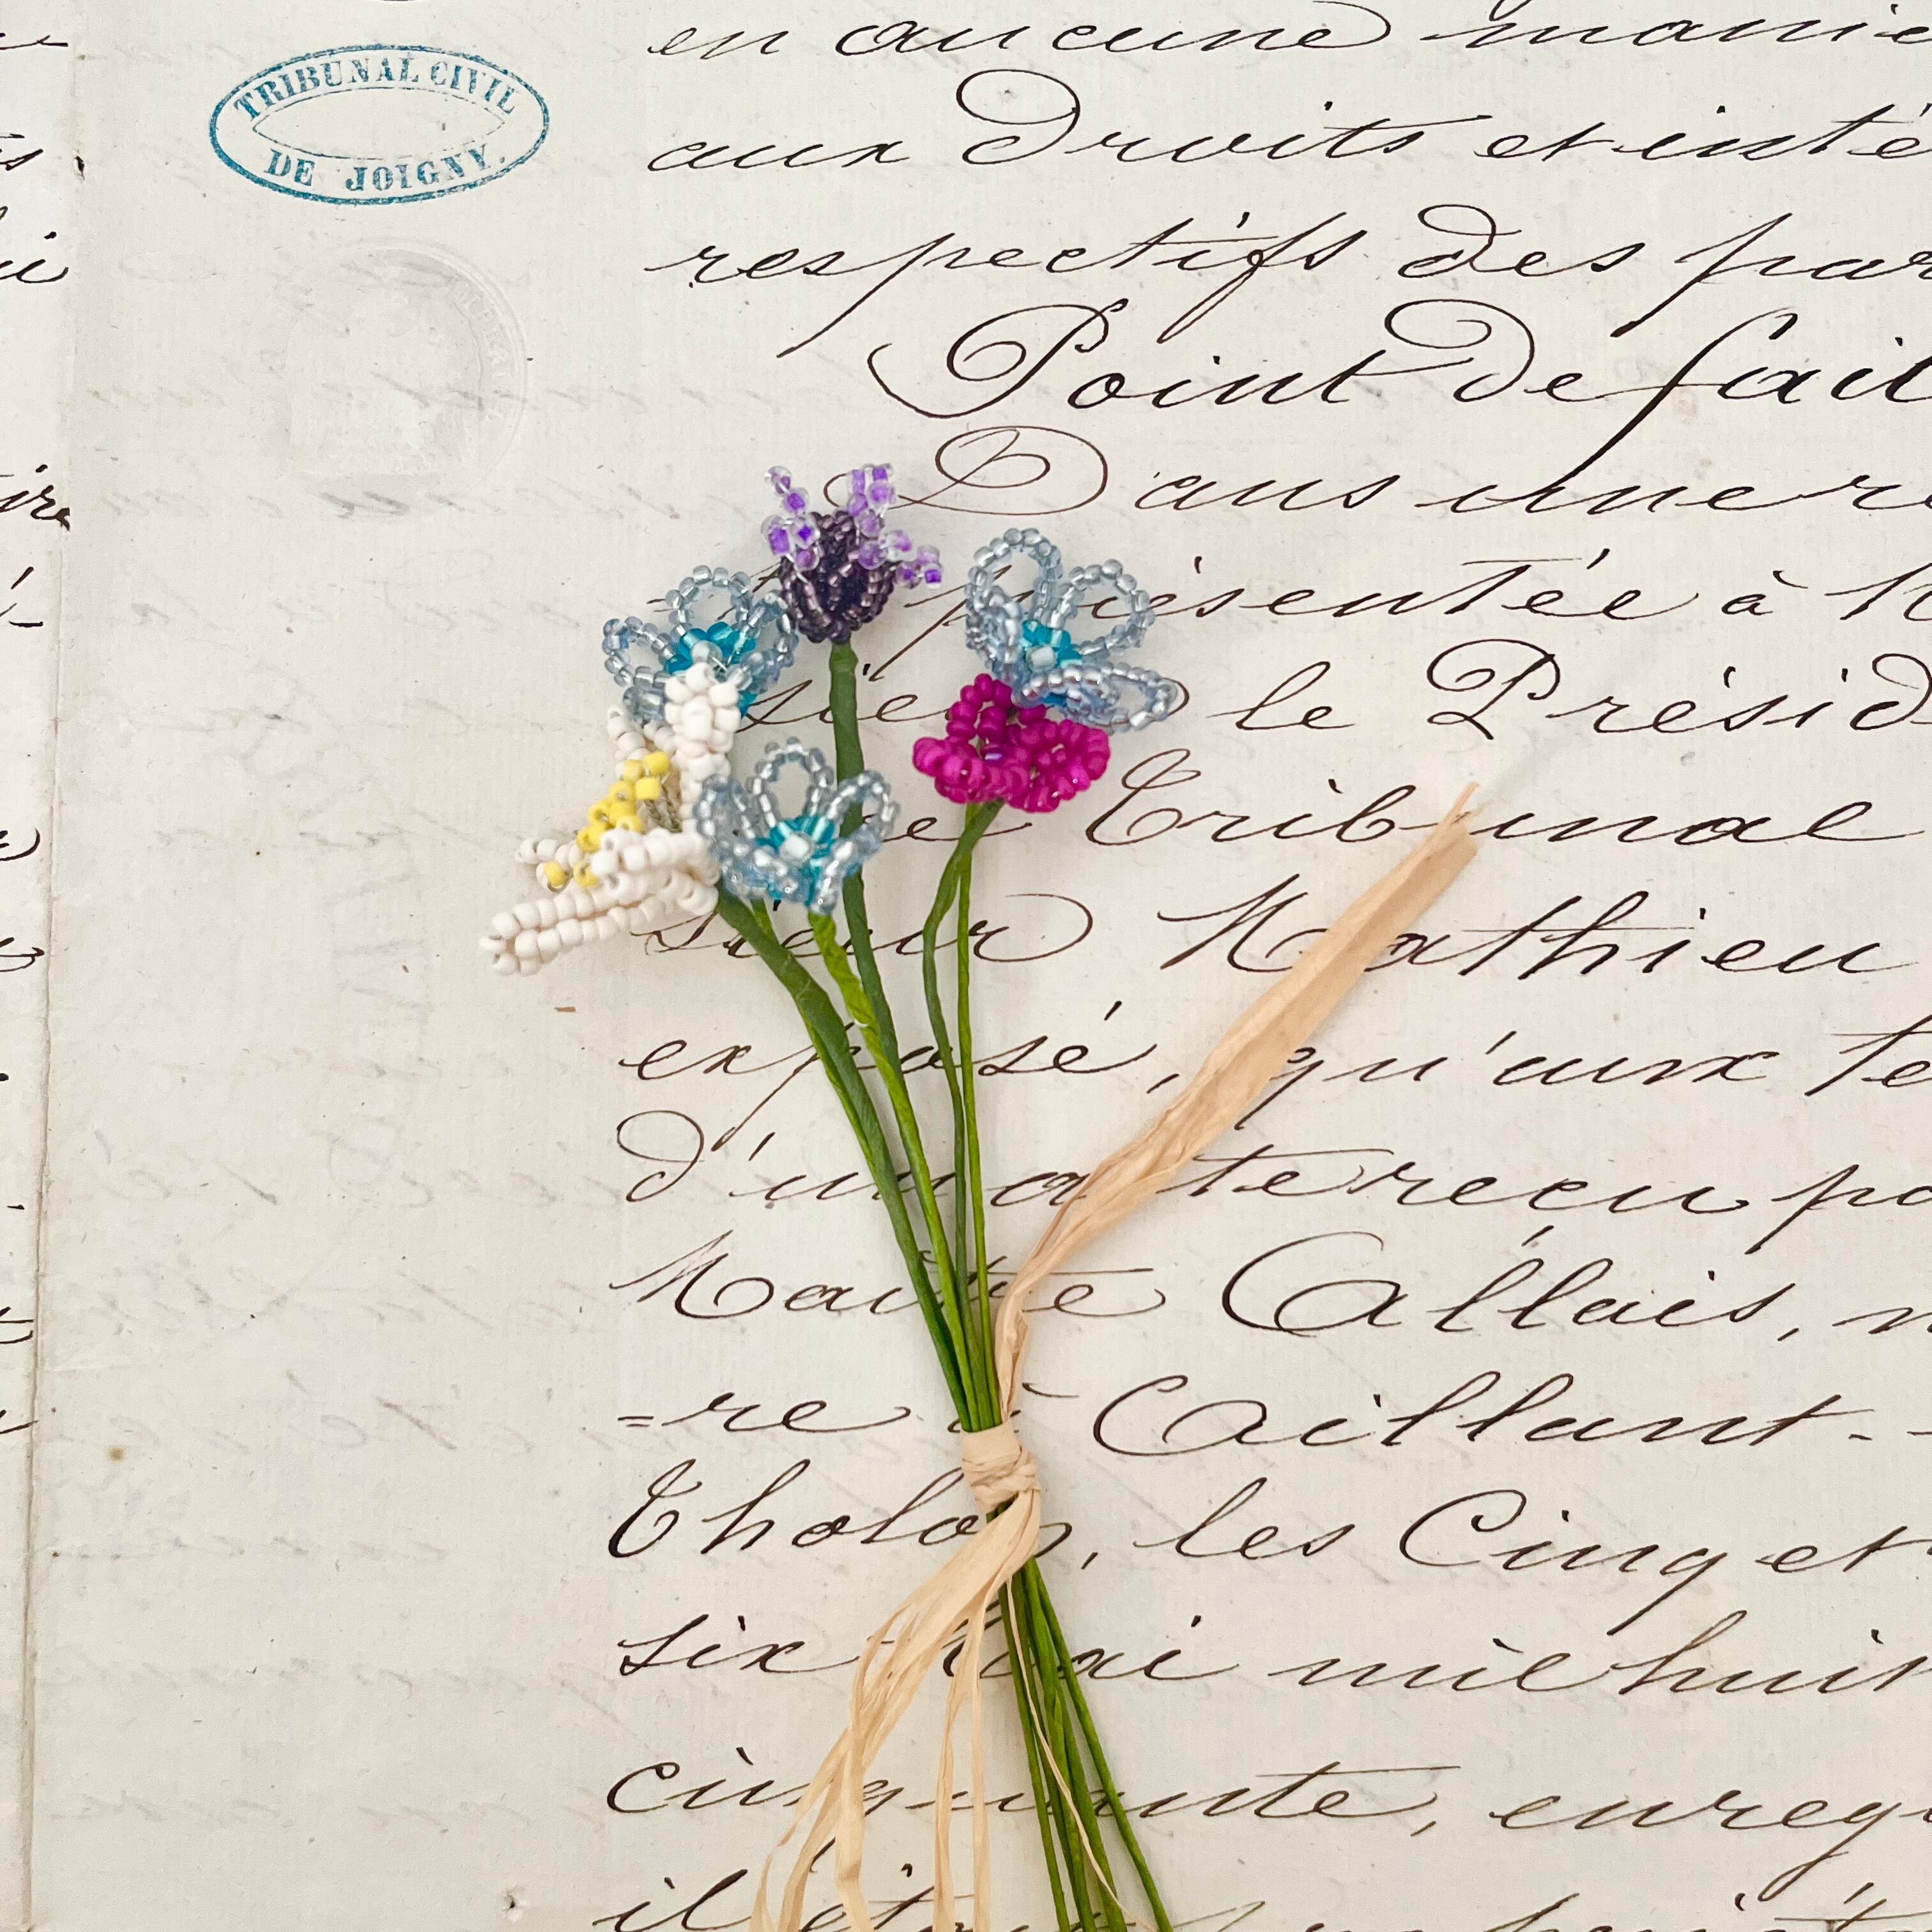 TRIBUNAL CIVIL
DE JOIGNY.
en aucune maniè
aux Droits et inté
respectifs des par
Point de fait
Dans une re
présentée à M
sie le Présid
Tribunal
sieur Mathieu
exposé, qu'aux te
d'un acte reçu pa
Maitre Allais, n
=re à Aillant-
Tholon, les Cinq et
six Mai mil huit
cinquante, enreg
il était